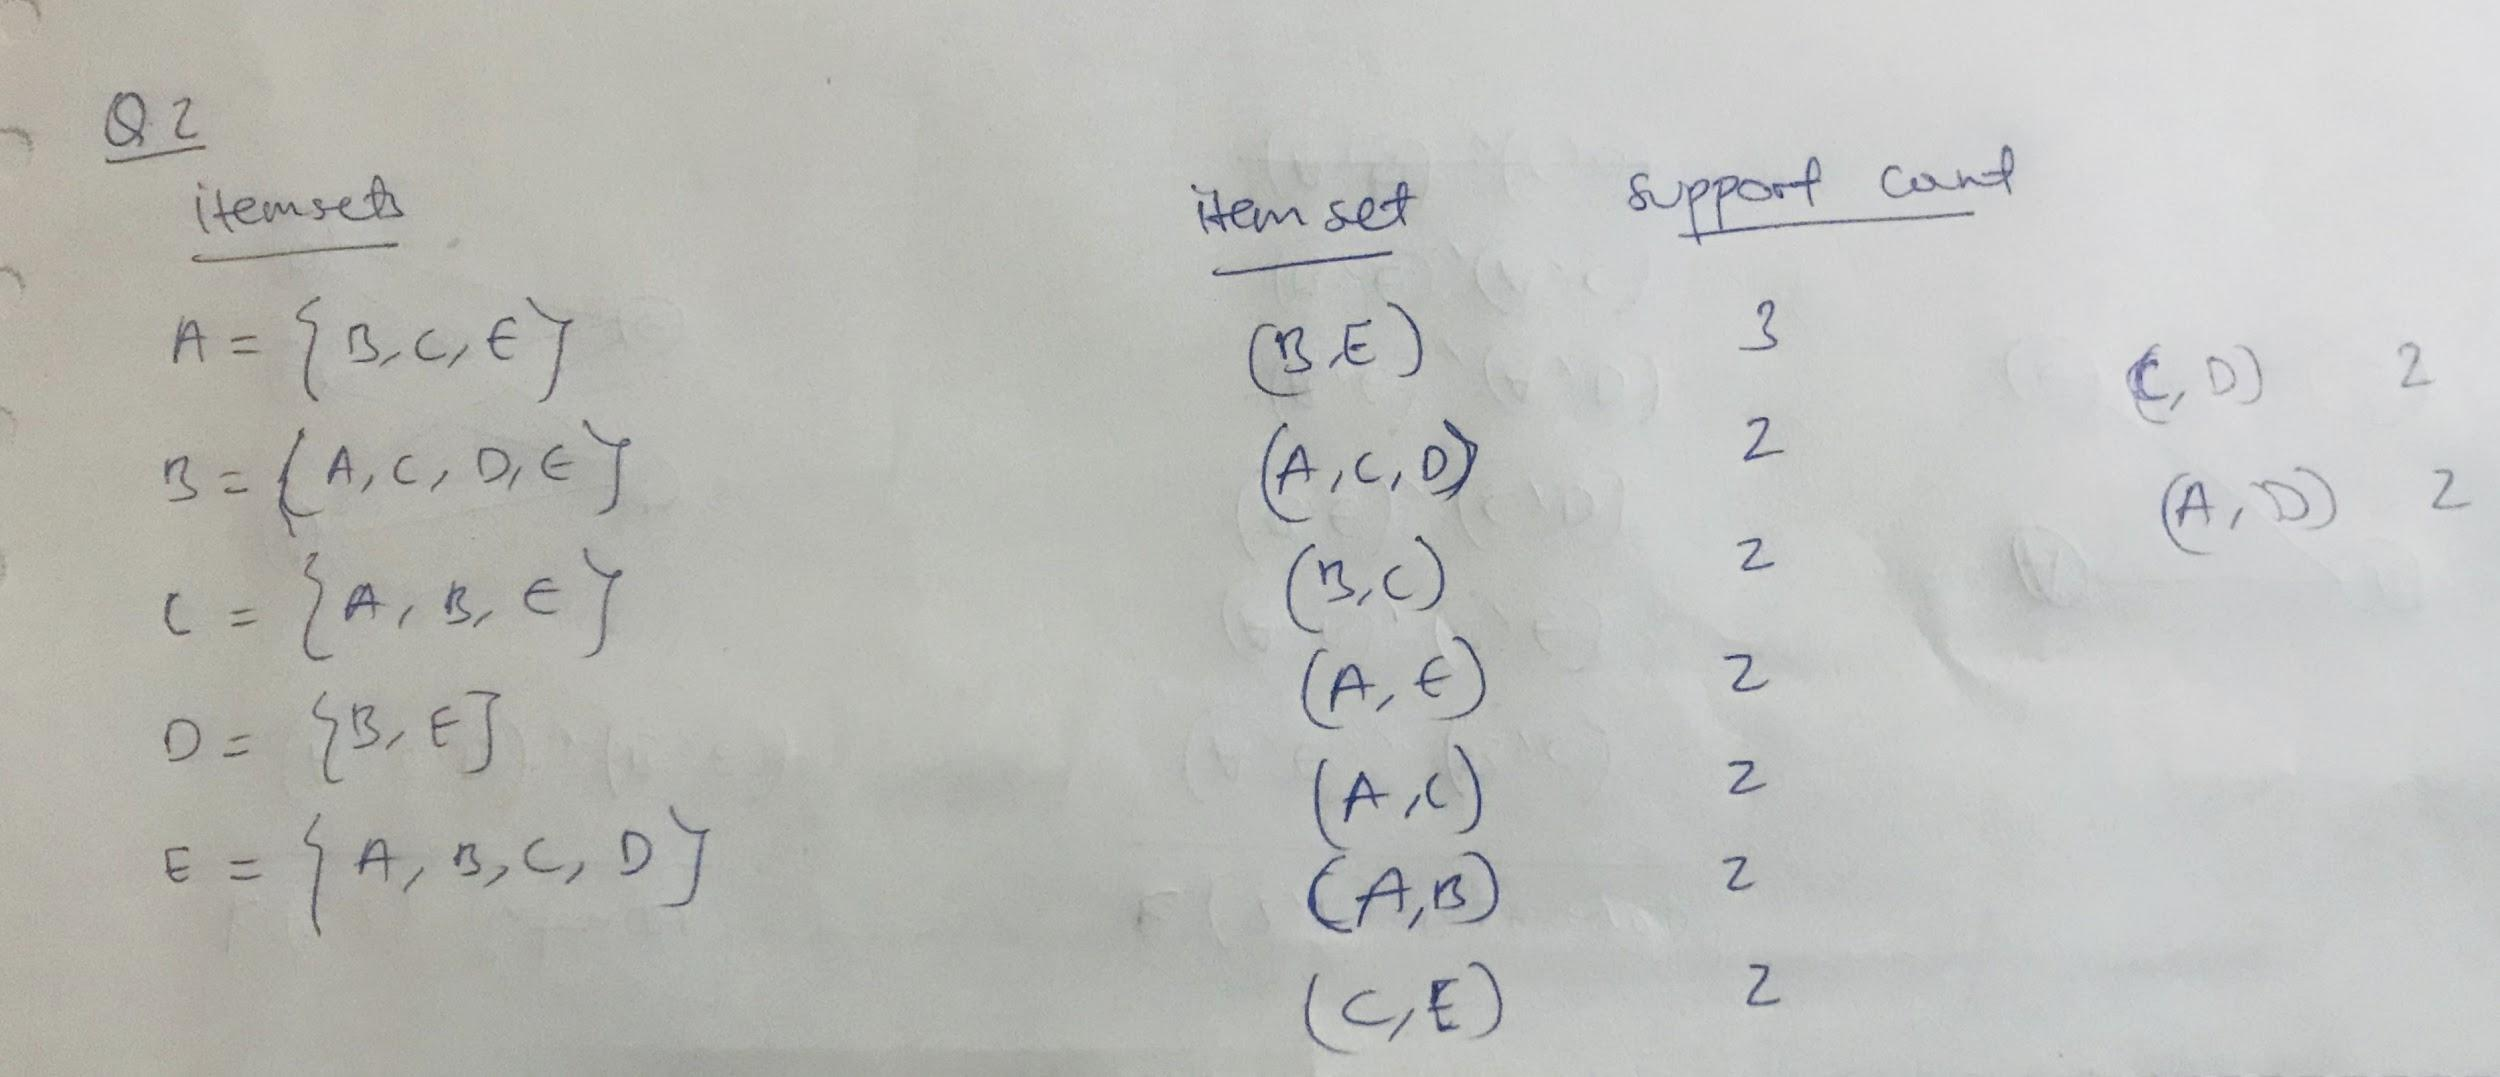 Q2
itemsets
A = {B, C, E}
B = {A, C, D, E}
C = {A, B, E}
D = {B, E}
E = {A, B, C, D}
itemset support count
(B,E) 3
(A, C, D) 2
(B, C) 2
(A, E) 2
(A, C) 2
(A, B) 2
(C, E) 2
(C, D) 2
(A, D) 2